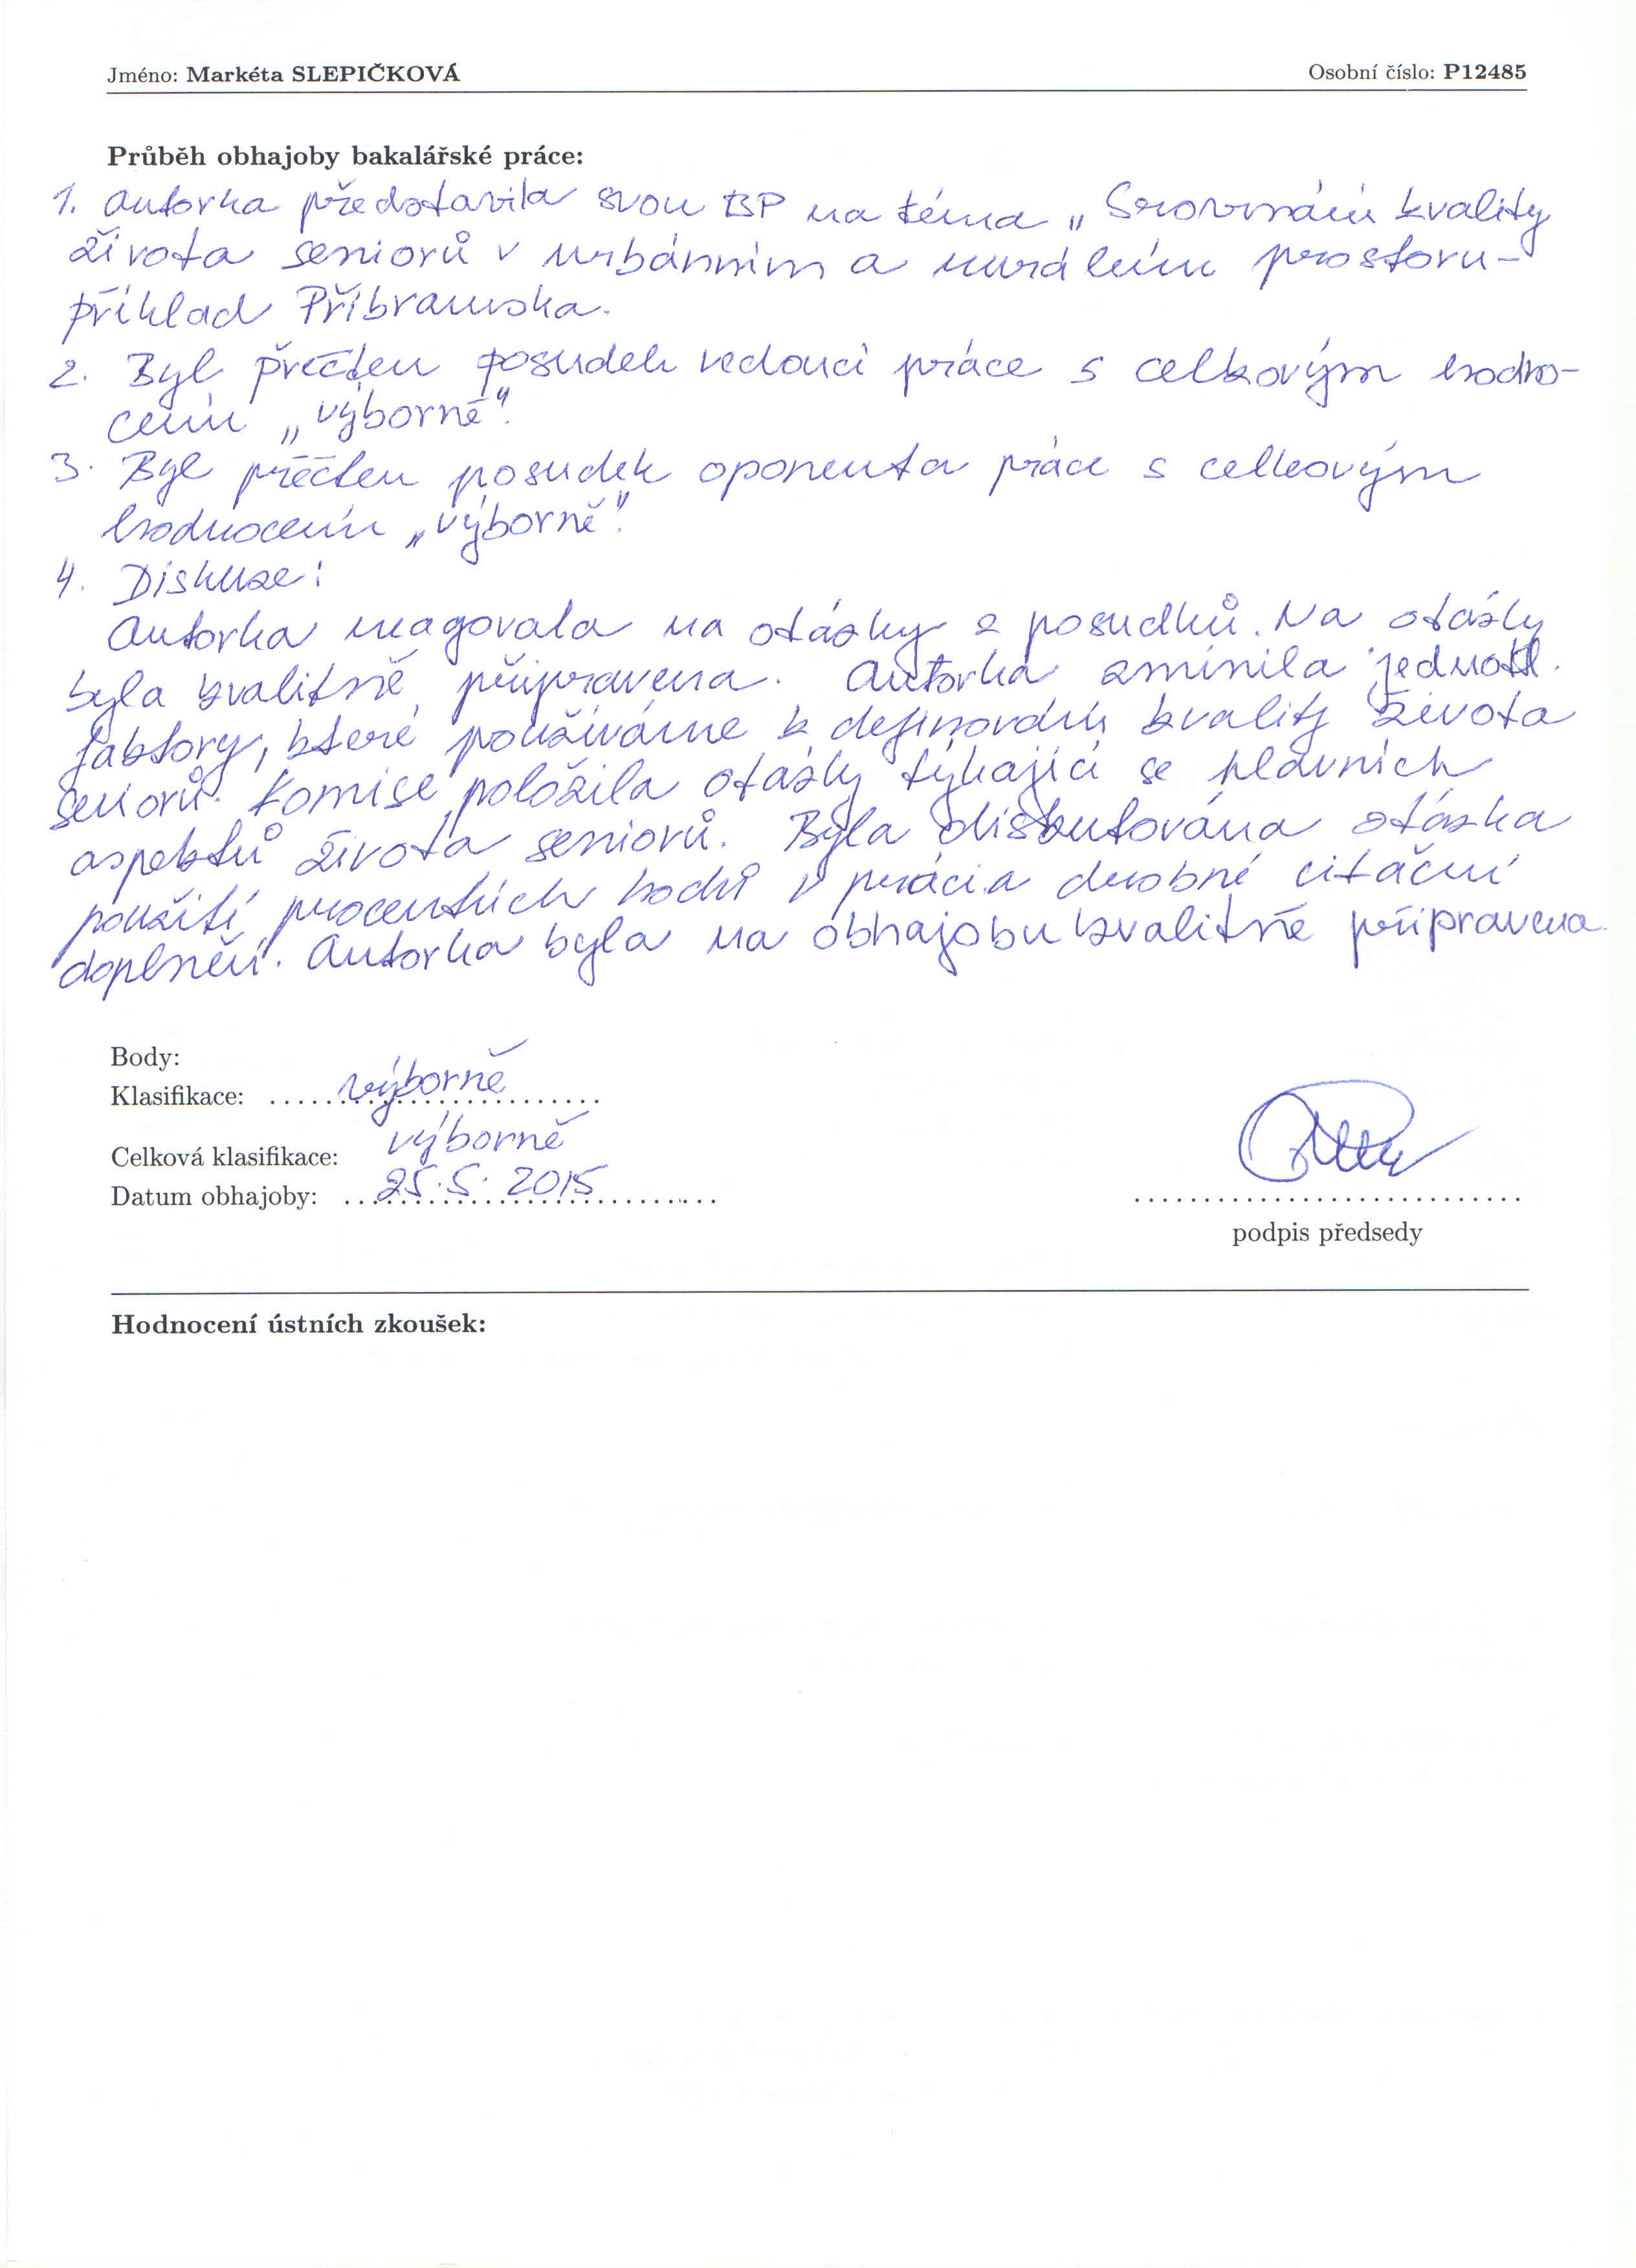 Jméno: Markéta SLEPIČKOVÁ Osobní číslo: P12485
Průběh obhajoby bakalářské práce:
1. Autorka představila svou BP na téma „Srovnání kvality
života seniorů v urbánním a rurálním prostoru -
příklad Příbramska.
2. Byl přečten posudek vedoucí práce s celkovým hodno-
cením „výborně".
3. Byl přečten posudek oponenta práce s celkovým
hodnocením „výborně".
4. Diskuze:
Autorka reagovala na otázky z posudků. Na otázky
byla kvalitně připravena. Autorka zmínila jednotl.
faktory, které používáme k definování kvality života
seniorů. Komise položila otázky týkající se hlavních
aspektů života seniorů. Byla diskutována otázka
použití procentních bodů v práci a drobné citační
doplnění. Autorka byla na obhajobu kvalitně připravena.
Body:
Klasifikace: výborně
Celková klasifikace: výborně
Datum obhajoby: 25. 5. 2015
podpis předsedy
Hodnocení ústních zkoušek: